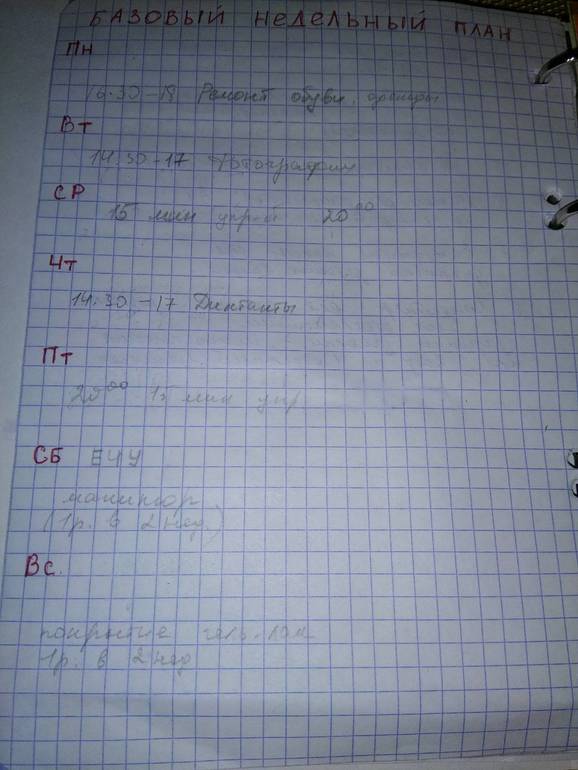 БАЗОВЫЙ НЕДЕЛЬНЫЙ ПЛАН
ПН
16:30-18 Ремонт обуви,
ВТ
14.30-17 Фотографии
СР
15 мин 20⁰⁰
ЧТ
14:30-17 Диктанты
ПТ
20⁰⁰ 15 мин упр
СБ ЕЧУ
маникюр
(1р. в 2 нед)
ВС.
покрытие гель-лак
1р. в 2 нед